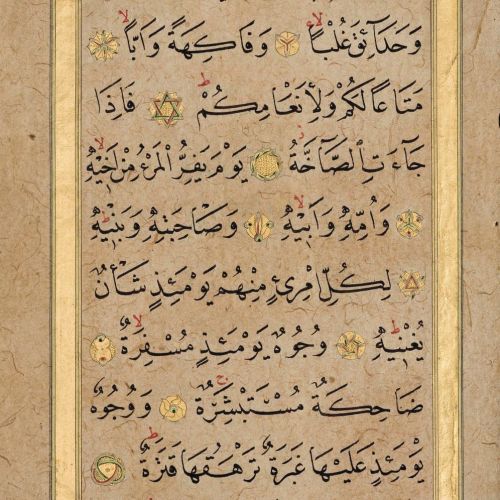 وَحَدَآئِقَ غُلْبًا وَفَاكِهَةً وَاَبًّا
مَتَاعًا لَكُمْ وَلِأَنْعَامِكُمْ فَاِذَا
جَآءَتِ الصَّآخَّةُ يَوْمَ يَفِرُّ الْمَرْءُ مِنْ اَخِيهِ
وَاُمِّهِ وَاَبِيهِ وَصَاحِبَتِهِ وَبَنِيهِ
لِكُلِّ امْرِئٍ مِنْهُمْ يَوْمَئِذٍ شَأْنٌ
يُغْنِيهِ وُجُوهٌ يَوْمَئِذٍ مُسْفِرَةٌ
ضَاحِكَةٌ مُسْتَبْشِرَةٌ وَوُجُوهٌ
يَوْمَئِذٍ عَلَيْهَا غَبَرَةٌ تَرْهَقُهَا قَتَرَةٌ